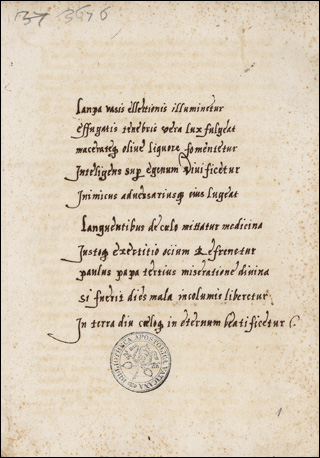 Lanpa vasis ellettionis illuminetur
effugatis tenebris vera lux fulgeat
maceratq olive liquore fomentetur
Inteligens sup egenum vivificetur
Inimicus adversariusq eius lugeat
Languentibus de celo mittatur medicina
Justoq exertitio ocium Refrenetur
paulus papa tertius miseratione divina
si fuerit dies mala incolumis liberetur
In terra diu cœloq in eternum beatificetur
BIBLIOTHECA APOSTOLICA VATICANA
1